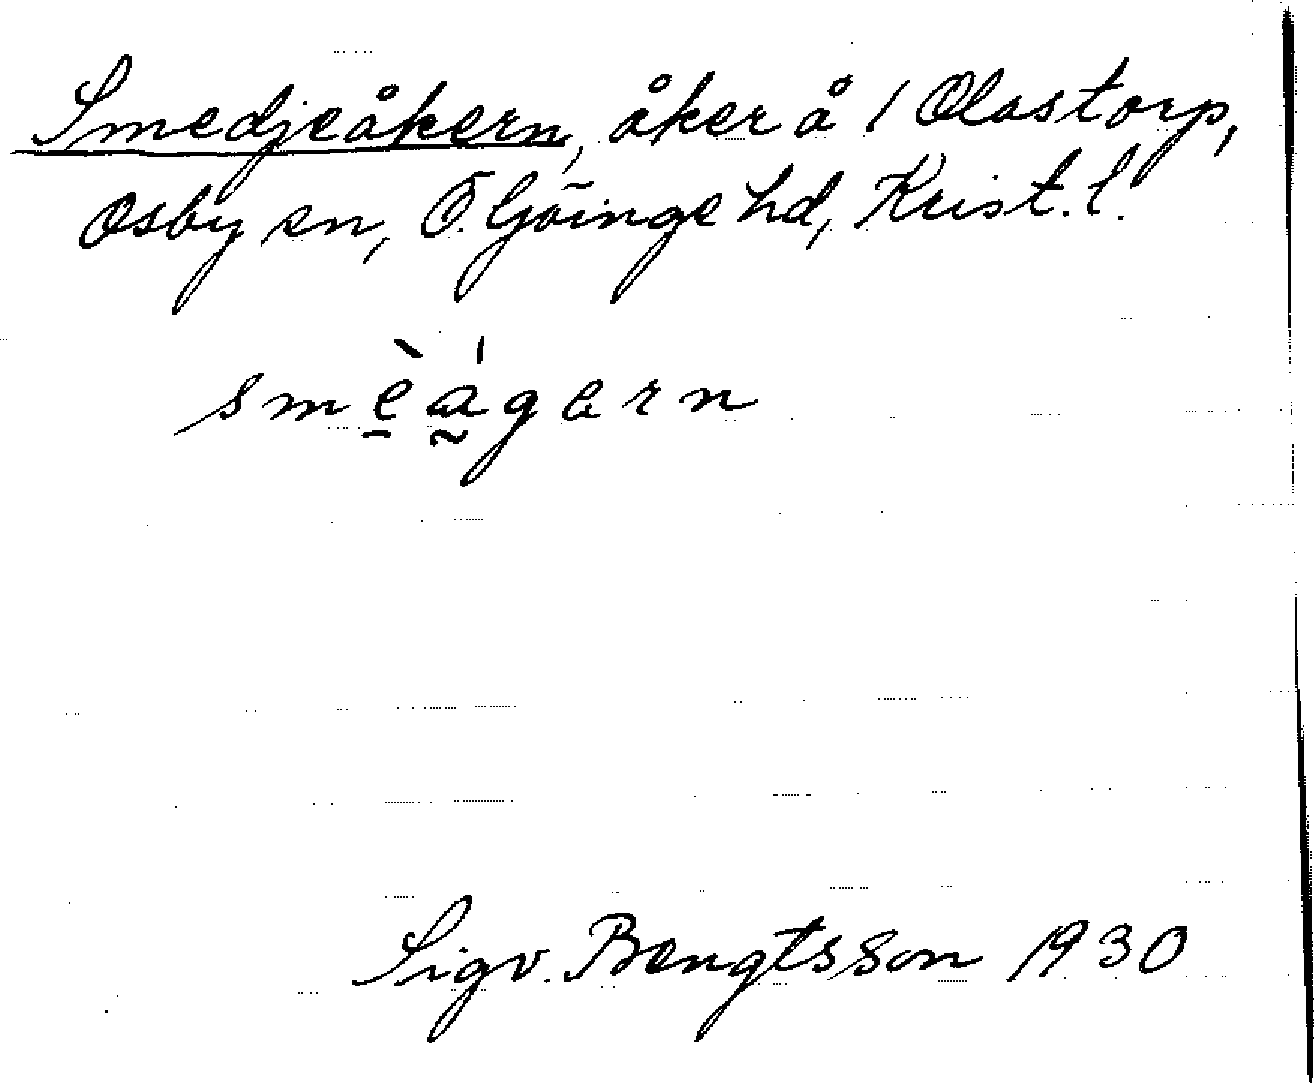 Smedjeåkern, åker å 1 Olastorp,
Osby sn, Ö. Göinge hd, Krist. l.
smèágern
Sigv. Bengtsson 1930